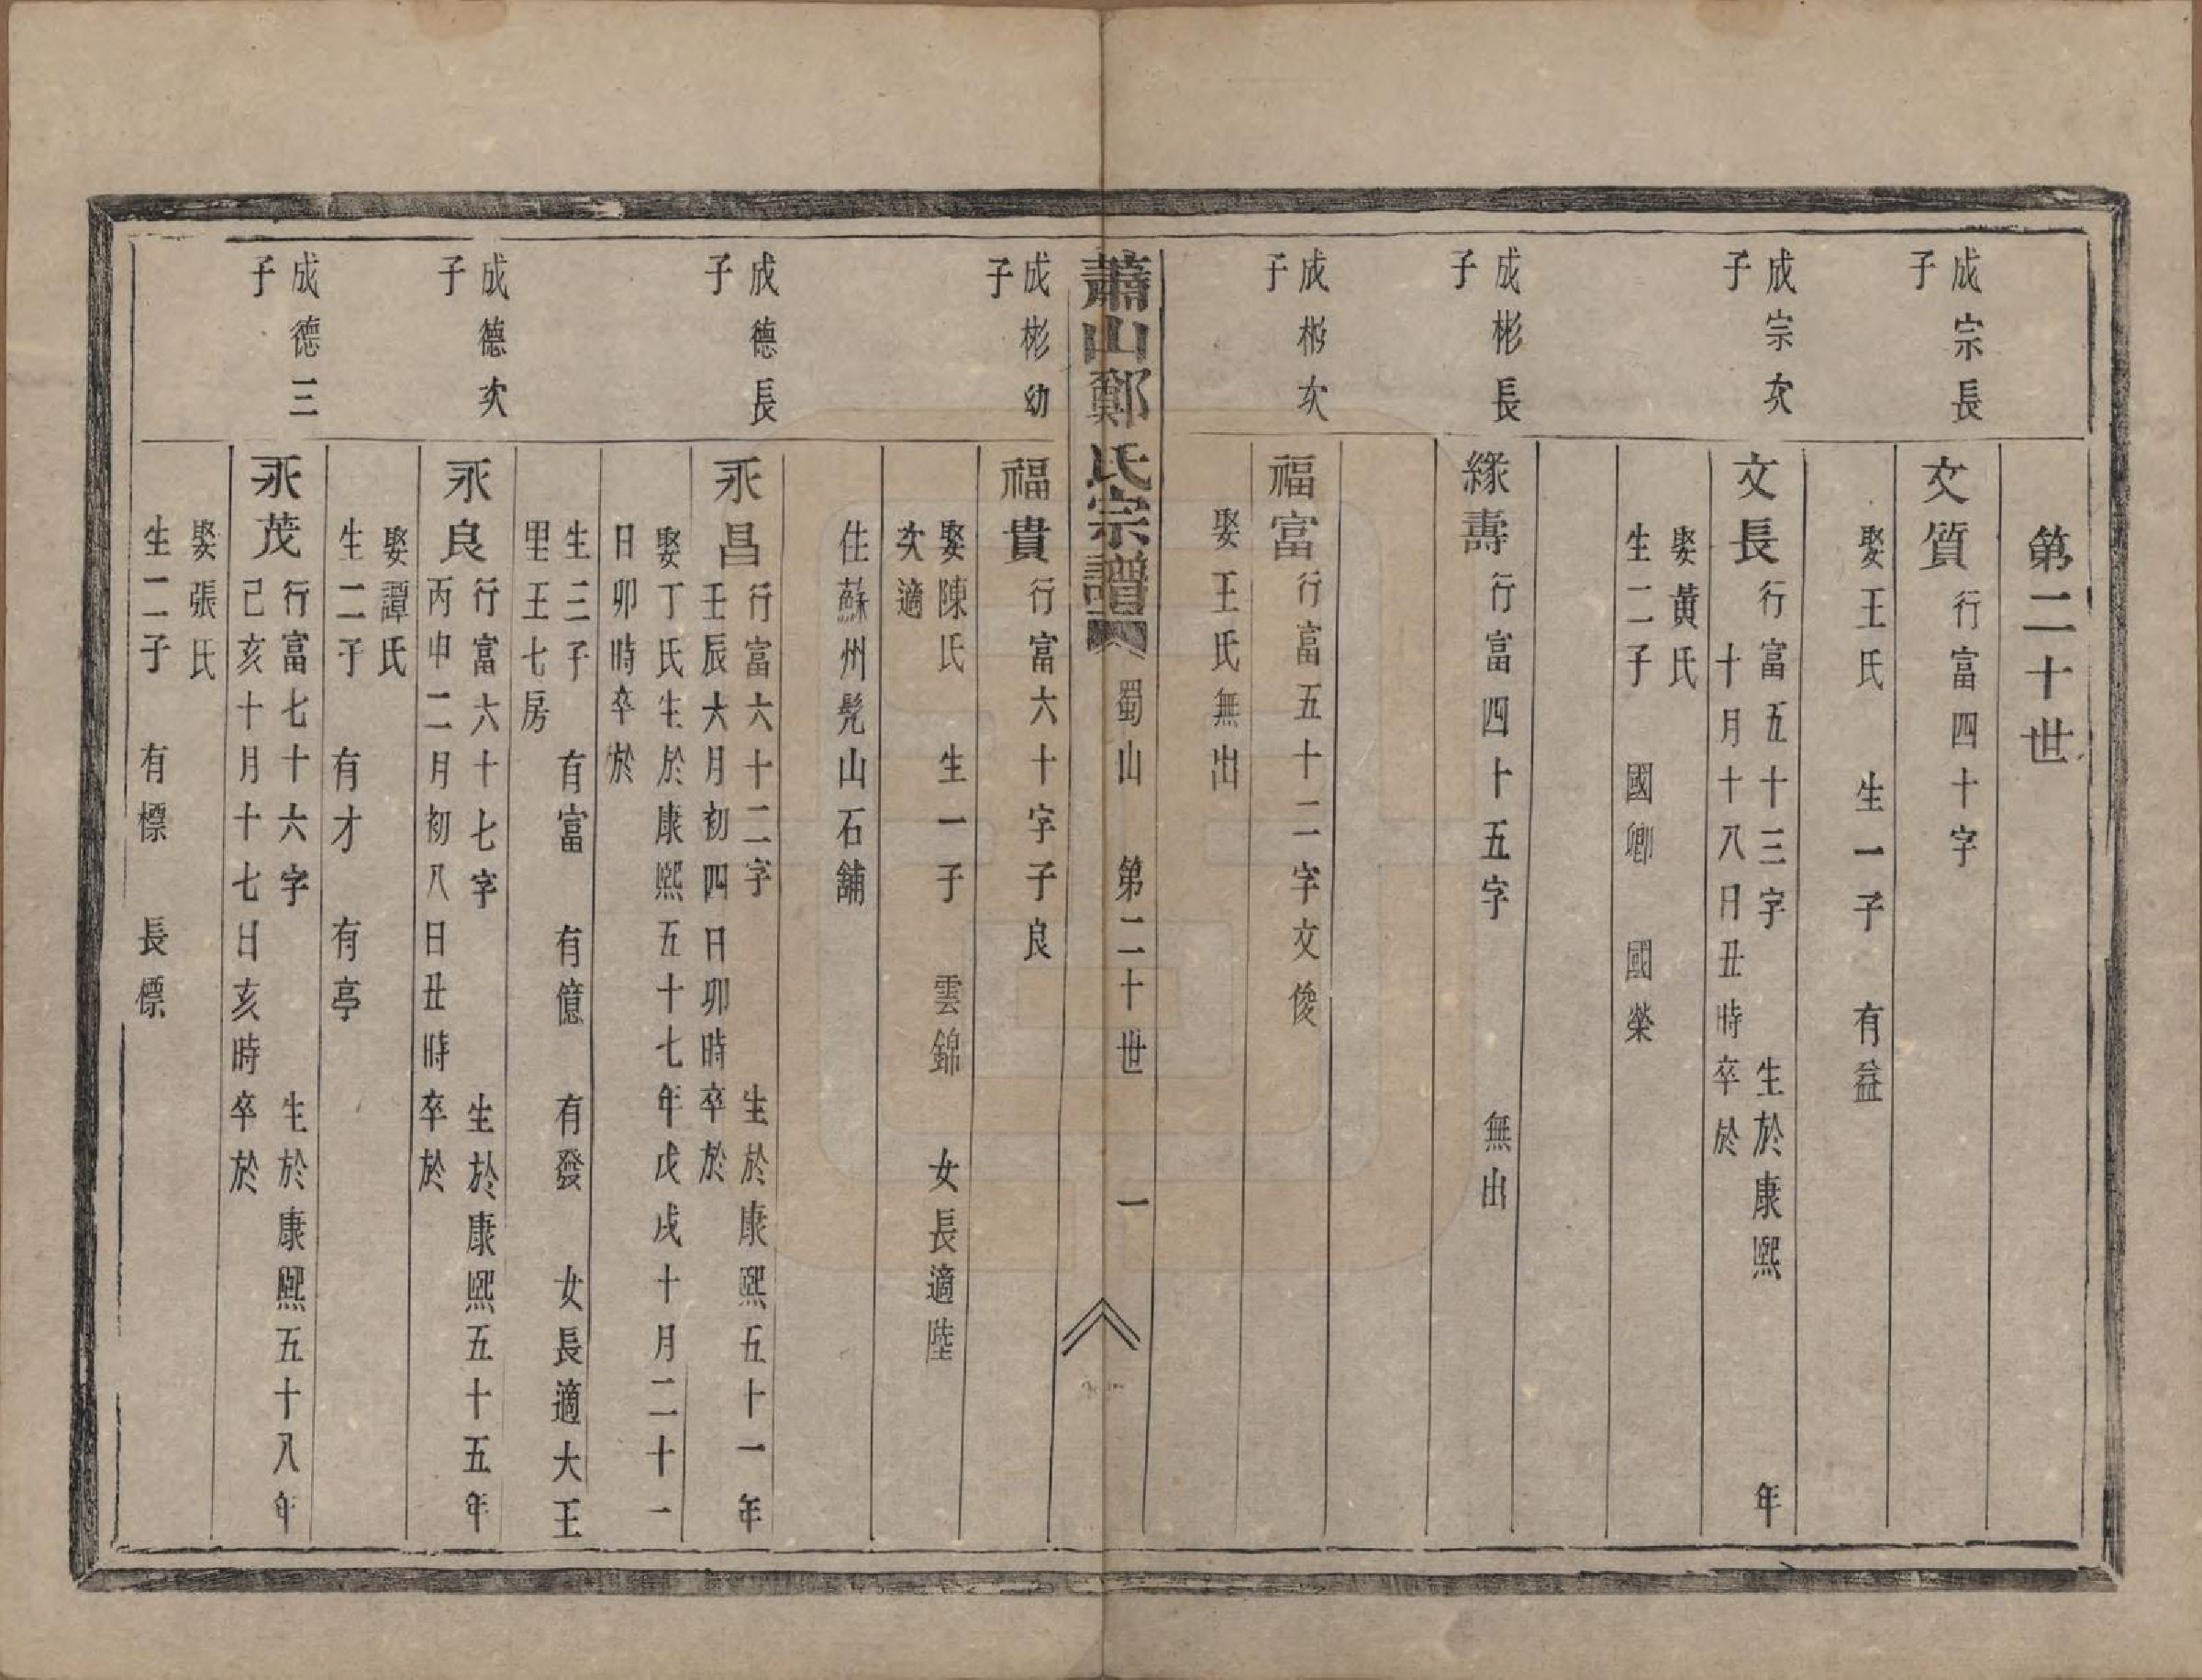 第二十世
成宗長子
文質 行富四十 字
娶王氏 生一子 有益
成宗次子
文長 行富五十三 字 生於康熙 年
十月十八日丑時卒於
娶黃氏
生二子 國卿 國榮
成彬長子
緣壽 行富四十五 字 無出
成彬次子
福富 行富五十二 字文俊
娶王氏無出
蕭山鄭氏宗譜 蜀山 第二十世 一
成彬幼子
福貴 行富六十 字子良
娶陳氏 生一子 雲錦 女長適陸
次適
住蘇州凳山石舖
成德長子
永昌 行富六十二 字 生於康熙五十一年
壬辰大月初四日卯時卒於
娶丁氏生於康熙五十七年戊戌十月二十一
日卯時卒於
生三子 有富 有億 有發 女長適大王
里王七房
成德次子
永良 行富六十七 字 生於康熙五十五年
丙申二月初八日丑時卒於
娶譚氏
生二子 有才 有亭
成德三子
永茂 行富七十六 字 生於康熙五十八年
己亥十月十七日亥時卒於
娶張氏
生二子 有標 長標